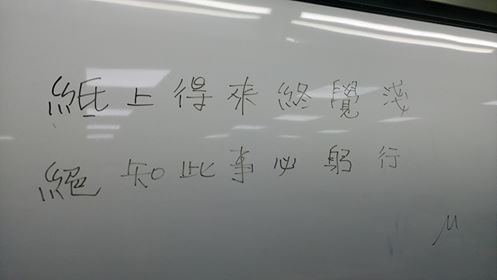 紙上得來終覺淺
絕知此事必躬行